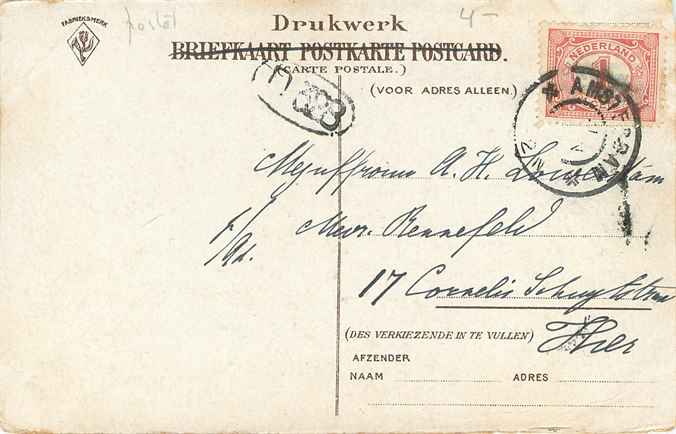 FABRIEKSMERK
postal
4-
Drukwerk
BRIEFKAART POSTKARTE POSTCARD.
(CARTE POSTALE.)
(VOOR ADRES ALLEEN.)
NEDERLAND
1
AMSTERDAM
Mejuffrouw A. H.
f/
Mevr. Rennefeld
Ad.
17 Cornelis Schuytstraat
Hier
(DES VERKIEZENDE IN TE VULLEN)
AFZENDER
NAAM ADRES